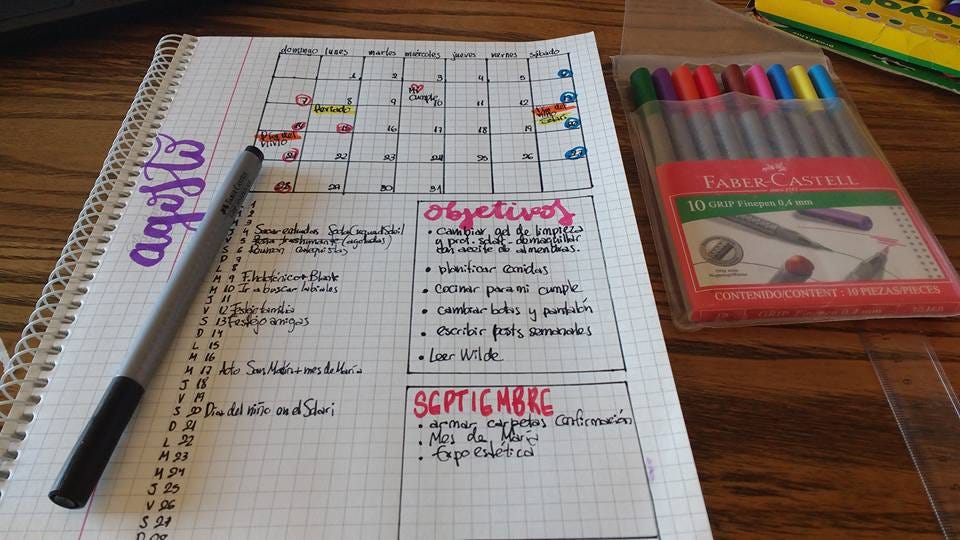 agosto
domingo lunes martes miércoles jueves viernes sábado
1 2 3 4 5 6
Mi cumple
7 8 9 10 11 12 13
Feriado
Día del niño Solari
14 15 16 17 18 19 20
Día del niño
21 22 23 24 25 26 27
28 29 30 31
1
2
3
J 4 Sacar entradas
V 5
S 6 Reunión catequistas
D 7
L 8
M 9 F. hotónico + Blanke
M 10 Ir a buscar labiales
J 11
V 12 Festejo familia
S 13 Festejo amigas
D 14
L 15
M 16
M 17 Acto San Martín + mes de María
J 18
V 19
S 20 Día del niño en el Solari
D 21
L 22
M 23
M 24
J 25
V 26
S 27
D 28
Objetivos
• cambiar gel de limpieza
y prot. solar - demaquillar
con aceite de almendras.
• planificar comidas
• cocinar para mi cumple
• cambiar botas y pantalón
• escribir posts semanales
• Leer Wilde
SEPTIEMBRE
• armar carpetas confirmación
• Mes de María
• Expo estética
FABER-CASTELL
10 GRIP Finepen 0,4 mm
CONTENIDO/CONTENT: 10 PIEZAS/PIECES
GRIP Finepen 0,4 mm